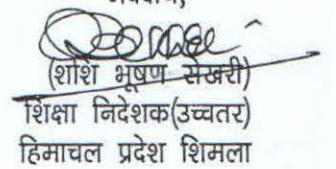 (शशि भूषण सेखरी)
शिक्षा निदेशक(उच्चतर)
हिमाचल प्रदेश शिमला